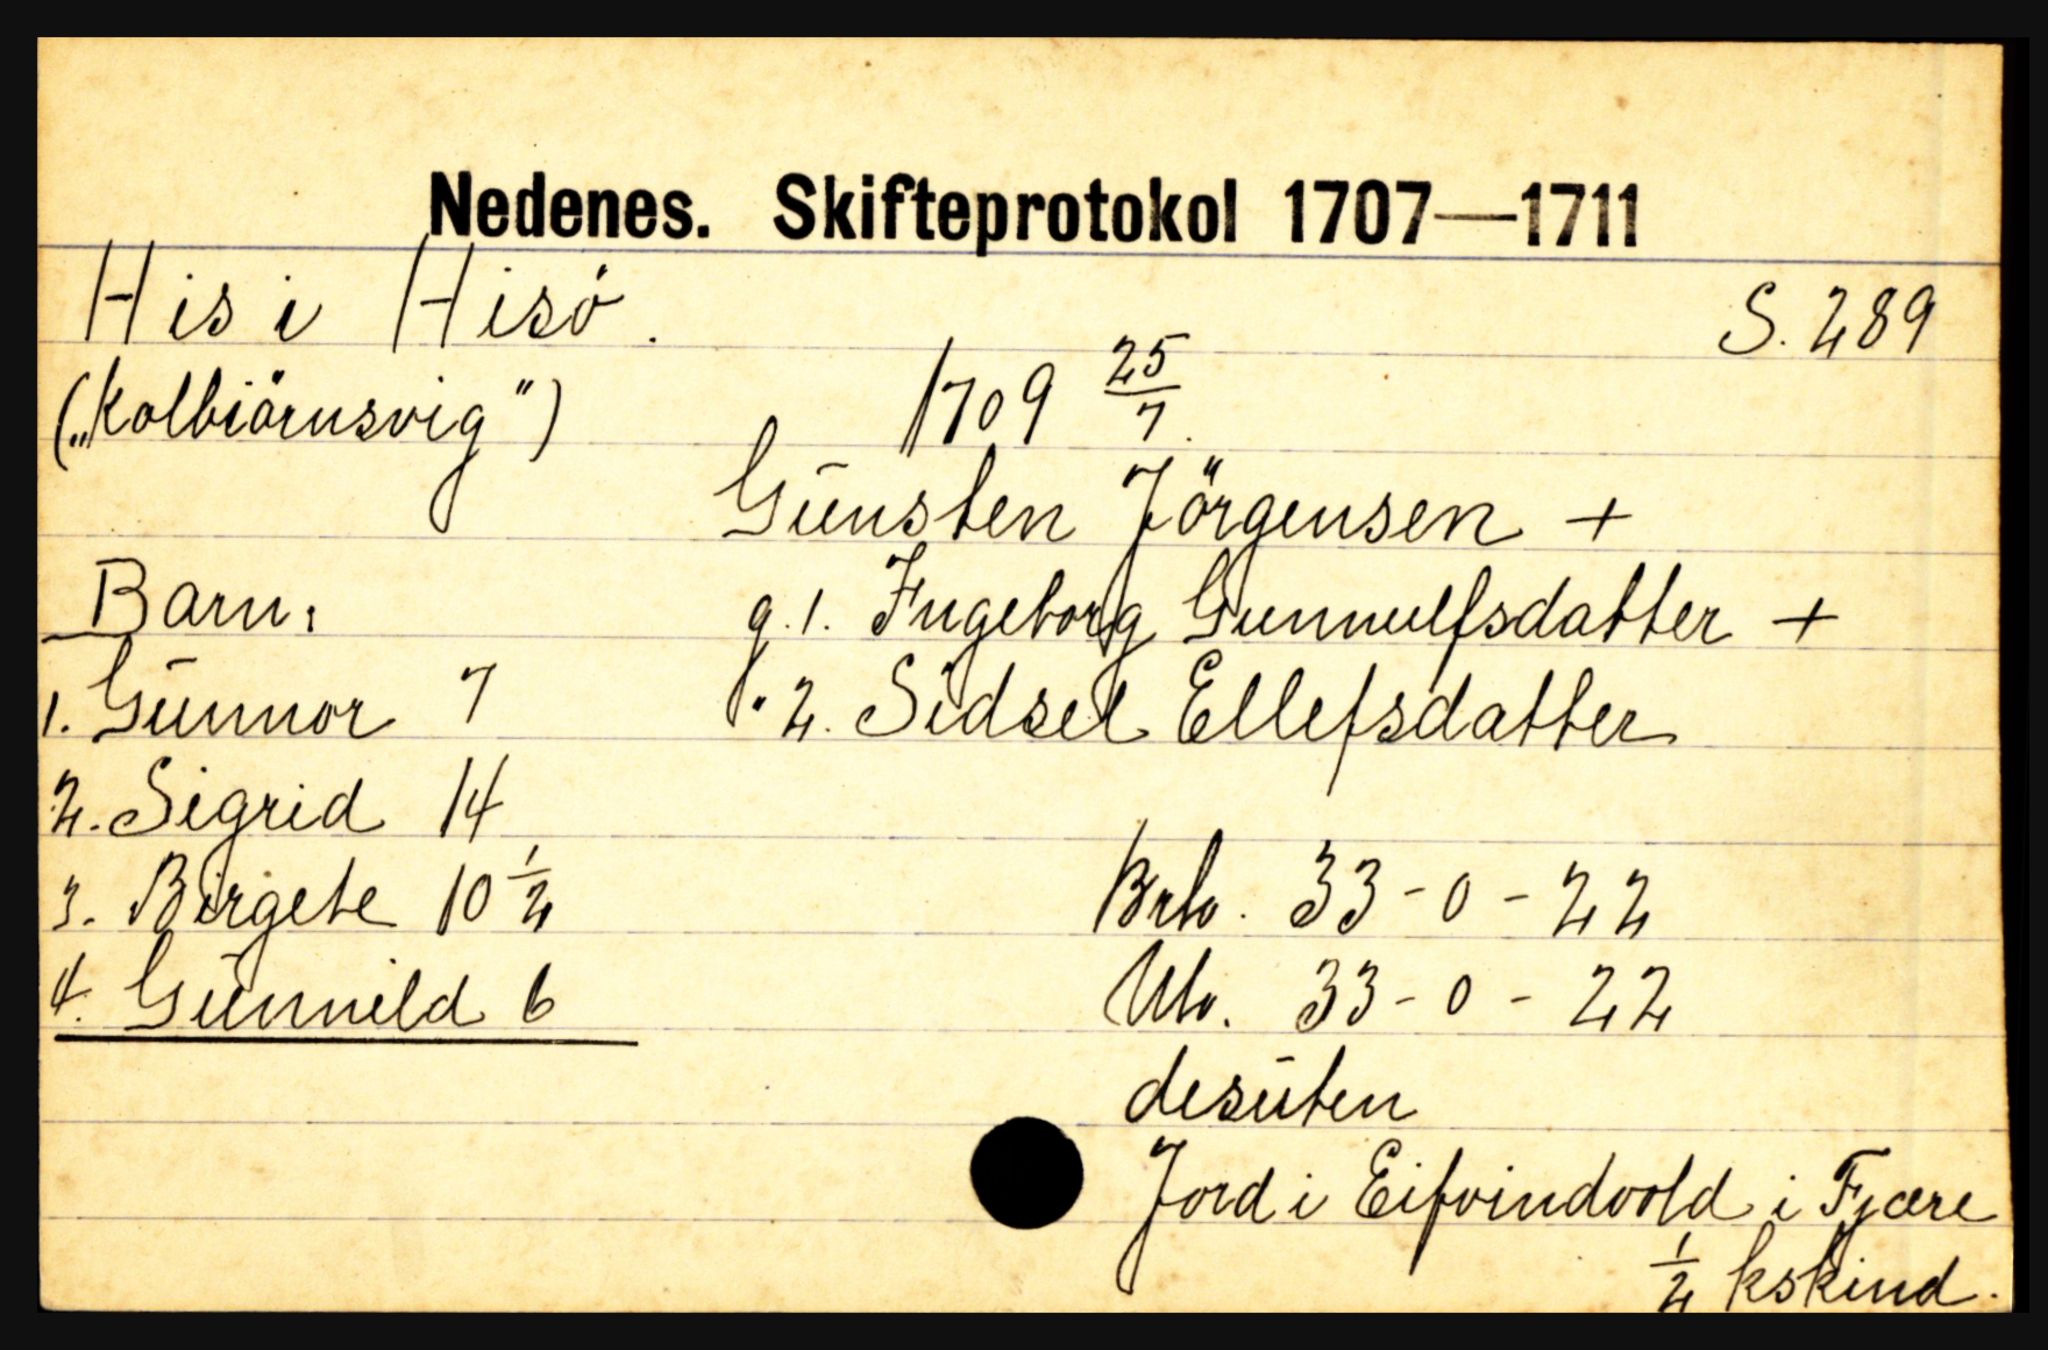 Nedenes. Skifteprotokol 1707—1711
His i Hisö. S. 289
(„Kolbiörnsvig") 1709 25/7.
Gunsten Jörgensen +
Barn: g. 1. Ingeborg Gunnulfsdatter +
1. Gunnor 7 " 2. Sidsel Ellefsdatter
2. Sigrid 14
3. Birgete 10 1/2 Brto. 33-0-22
4. Gunnild 6 Nto. 33-0-22
desuten
Jord i Eifvindvold i Fjære
1/2 kskind.